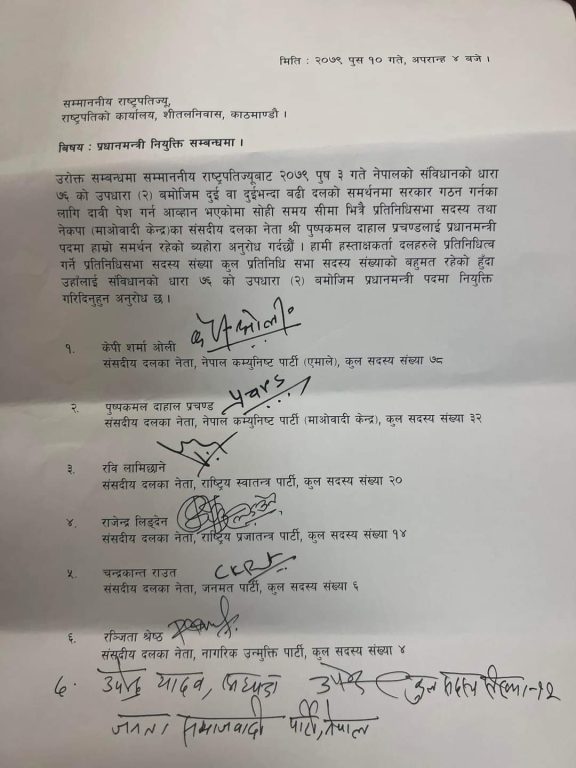 मिति : २०७९ पुस १० गते, अपरान्ह ४ बजे ।
सम्माननीय राष्ट्रपतिज्यू,
राष्ट्रपतिको कार्यालय, शीतलनिवास, काठमाण्डौ ।
बिषय : प्रधानमन्त्री नियुक्ति सम्बन्धमा ।
उरोक्त सम्बन्धमा सम्माननीय राष्ट्रपतिज्यूबाट २०७९ पुष ३ गते नेपालको संविधानको धारा
७६ को उपधारा (२) बमोजिम दुई वा दुईभन्दा बढी दलको समर्थनमा सरकार गठन गर्नका
लागि दावी पेश गर्न आव्हान भएकोमा सोही समय सीमा भित्रै प्रतिनिधिसभा सदस्य तथा
नेकपा (माओवादी केन्द्र)का संसदीय दलका नेता श्री पुष्पकमल दाहाल प्रचण्डलाई प्रधानमन्त्री
पदमा हाम्रो समर्थन रहेको ब्यहोरा अनुरोध गर्दछौं । हामी हस्ताक्षकर्ता दलहरुले प्रतिनिधित्व
गर्ने प्रतिनिधिसभा सदस्य संख्या कुल प्रतिनिधि सभा सदस्य संख्याको बहुमत रहेको हुँदा
उहाँलाई संविधानको धारा ७६ को उपधारा (२) बमोजिम प्रधानमन्त्री पदमा नियुक्ति
गरिदिनुहुन अनुरोध छ ।
१. केपी शर्मा ओली के पी ओली
संसदीय दलका नेता, नेपाल कम्युनिष्ट पार्टी (एमाले), कुल सदस्य संख्या ७८
२. पुष्पकमल दाहाल प्रचण्ड
संसदीय दलका नेता, नेपाल कम्युनिष्ट पार्टी (माओवादी केन्द्र), कुल सदस्य संख्या ३२
३. रवि लामिछाने
संसदीय दलका नेता, राष्ट्रिय स्वातन्त्र पार्टी, कुल सदस्य संख्या २०
४. राजेन्द्र लिङ्देन
संसदीय दलका नेता, राष्ट्रिय प्रजातन्त्र पार्टी, कुल सदस्य संख्या १४
५. चन्द्रकान्त राउत
संसदीय दलका नेता, जनमत पार्टी, कुल सदस्य संख्या ६
६. रञ्जिता श्रेष्ठ
संसदीय दलका नेता, नागरिक उन्मुक्ति पार्टी, कुल सदस्य संख्या ४
७. उपेन्द्र यादव, कुल सदस्य संख्या-१२
जनता समाजवादी पार्टी, नेपाल